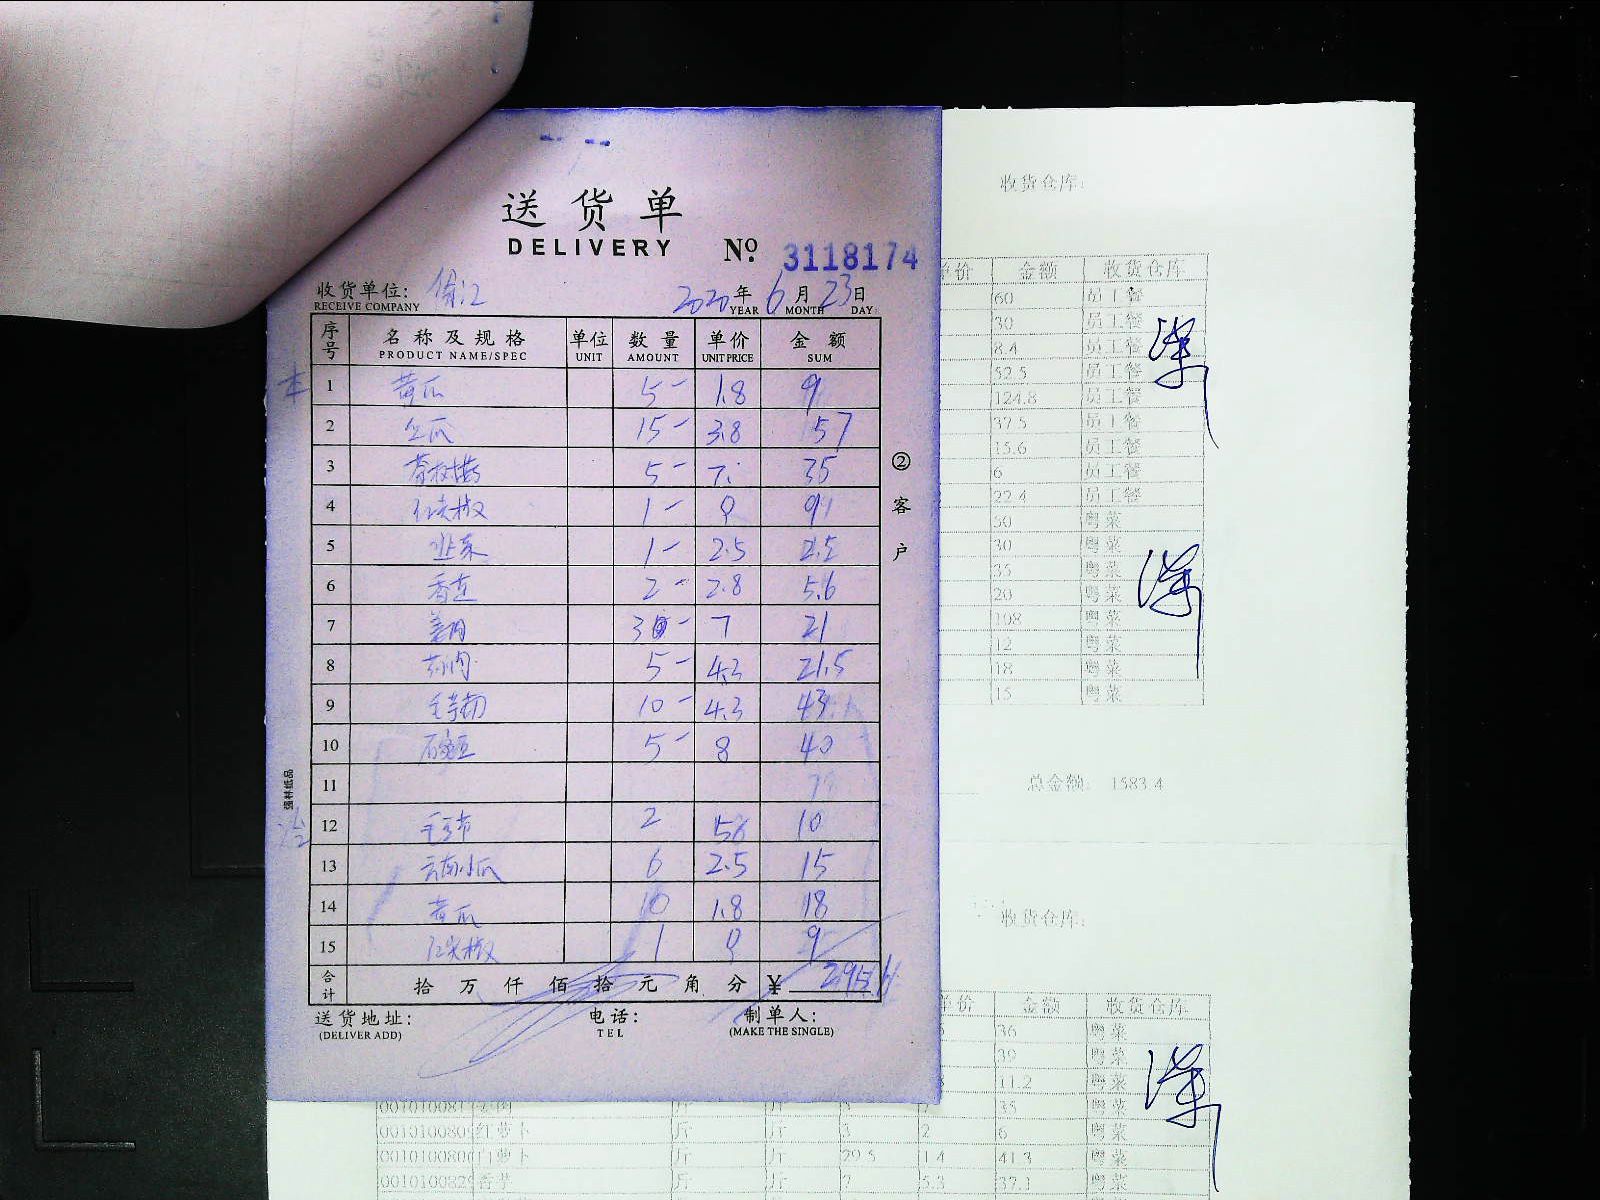 送货单
DELIVERY № 3118174
收货单位: 徐汇 2020年6月23日
RECEIVE COMPANY YEAR MONTH DAY
序号 名称及规格 单位 数量 单价 金额
PRODUCT NAME/SPEC UNIT AMOUNT UNIT PRICE SUM
1 黄瓜 5- 1.8 9
2 15- 3.8 57
3 5- 7. 35
4 红尖椒 1- 9 9
5 韭菜 1- 2.5 2.5
6 2- 2.8 5.6
7 姜肉 3 - 7 21
8 5- 4.3 21.5
9 10- 4.3 43
10 5- 8 40
11
12 2 5 10
13 云南小瓜 6 2.5 15
14 黄瓜 10 1.8 18
15 红尖椒 1 9 9
合计 拾万仟佰拾元角分 ¥
送货地址: 电话: 制单人:
(DELIVER ADD) TEL (MAKE THE SINGLE)
②客户
强林纸品
收货仓库:
单价 金额 收货仓库
60 员工餐
30 员工餐
8.4 员工餐
52.5 员工餐
124.8 员工餐
37.5 员工餐
15.6 员工餐
6 员工餐
22.4 员工餐
50 粤菜
30 粤菜
35 粤菜
20 粤菜
108 粤菜
12 粤菜
18 粤菜
15 粤菜
总金额: 1583.4
收货仓库:
单价 金额 收货仓库
36 粤菜
39 粤菜
11.2 粤菜
35 粤菜
红萝卜 斤 斤 3 2 6 粤菜
白萝卜 斤 斤 29.5 1.4 41.3 粤菜
香芋 斤 斤 7 5.3 37.1 粤菜